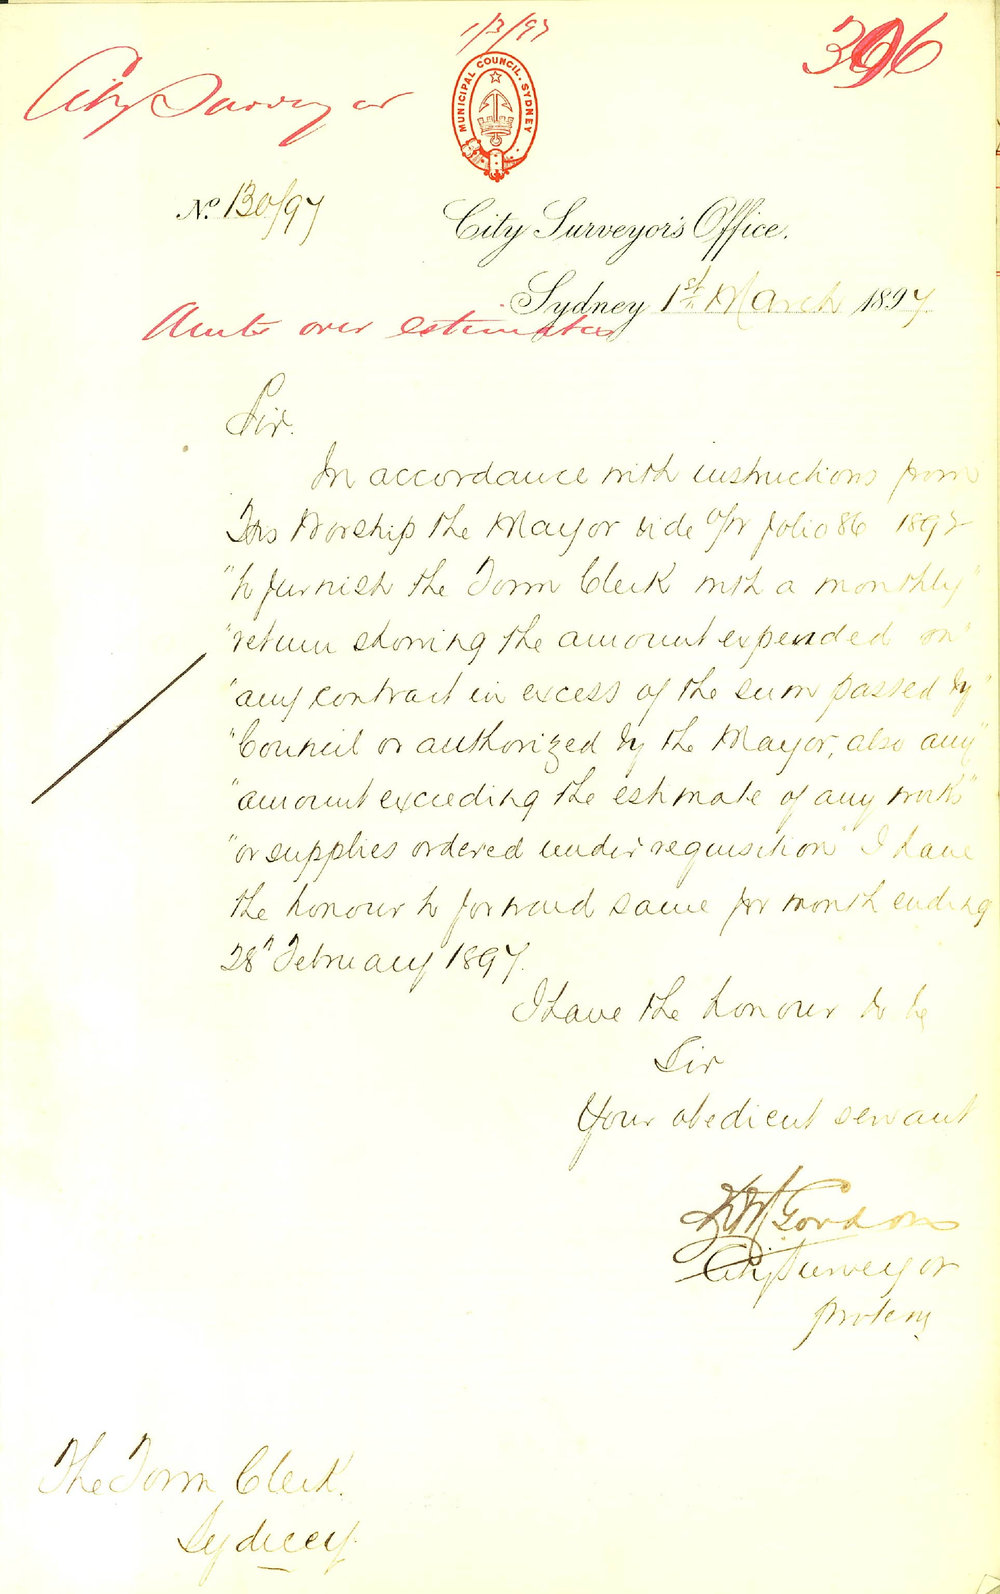 1/3/97
396
City Surveyor
MUNICIPAL COUNCIL. SYDNEY
No. 130/97
City Surveyor's Office.
Sydney 1st March 1897
Amts over estimates
Sir.
In accordance with instructions from
His Worship the Mayor vide folio 86 1897
"to furnish the Town Clerk with a monthly"
"return showing the amount expended on"
"any contract in excess of the sum passed by"
"Council or authorized by the Mayor, also any"
"amount exceeding the estimate of any works"
"or supplies ordered under requisition" I have
the honour to forward same for month ending
28th February 1897.
I have the honour to be
Sir
Your obedient servant
Gordon
City Surveyor
protem
The Town Clerk.
Sydney.